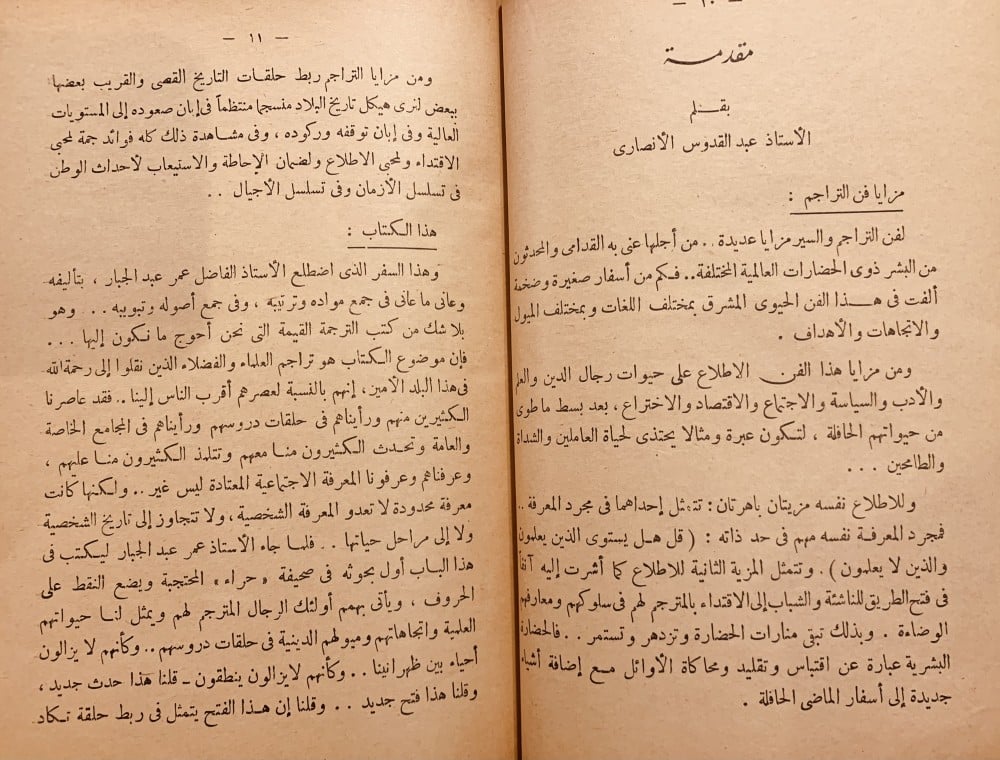 — ١٠ —
مقدمة
بقلم
الأستاذ عبد القدوس الأنصارى
مزايا فن التراجم :
لفن التراجم والسير مزايا عديدة . . من أجلها عنى به القدامى والمحدثون
من البشر ذوى الحضارات العالمية المختلفة .. فكم من أسفار صغيرة وضخمة
ألفت فى هذا الفن الحيوى المشرق بمختلف اللغات وبمختلف الميول
والاتجاهات والأهداف .
ومن مزايا هذا الفن الاطلاع على حيوات رجال الدين والعلم
والأدب والسياسة والاجتماع والاقتصاد والاختراع ، بعد بسط ما طوى
من حيواتهم الحافلة ، لتكون عبرة ومثالا يحتذى لحياة العاملين والشداة
والطامحين . . .
وللاطلاع نفسه مزيتان باهرتان : تتمثل إحداهما فى مجرد المعرفة ..
فمجرد المعرفة نفسه مهم فى حد ذاته : ( قل هل يستوى الذين يعلمون
والذين لا يعلمون ) . وتتمثل المزية الثانية للاطلاع كما أشرت إليه آنفا
فى فتح الطريق للناشئة والشباب إلى الاقتداء بالمترجم لهم فى سلوكهم ومعارفهم
الوضاءة . وبذلك تبقى منارات الحضارة وتزدهر وتستمر . . فالحضارة
البشرية عبارة عن اقتباس وتقليد ومحاكاة الأوائل مع إضافة أشياء
جديدة إلى أسفار الماضى الحافلة .
— ١١ —
ومن مزايا التراجم ربط حلقات التاريخ القصى والقريب بعضها
ببعض لنرى هيكل تاريخ البلاد منسجما منتظماً فى إبان صعوده إلى المستويات
العالية وفى إبان توقفه وركوده ، وفى مشاهدة ذلك كله فوائد جمة لمحبى
الاقتداء ولمحبى الاطلاع ولضمان الإحاطة والاستيعاب لأحداث الوطن
فى تسلسل الأزمان وفى تسلسل الأجيال . .
هذا الكتاب :
وهذا السفر الذى اضطلع الأستاذ الفاضل عمر عبد الجبار ، بتأليفه
وعانى ما عانى فى جمع مواده وترتيبه ، وفى جمع أصوله وتبويبه . . . وهو
بلا شك من كتب الترجمة القيمة التى نحن أحوج ما نكون إليها . . .
فإن موضوع الكتاب هو تراجم العلماء والفضلاء الذين نقلوا إلى رحمة الله
فى هذا البلد الأمين ، إنهم بالنسبة لعصرهم أقرب الناس إلينا .. فقد عاصرنا
الكثيرين منهم ورأيناهم فى حلقات دروسهم ورأيناهم فى المجامع الخاصة
والعامة وتحدث الكثيرون منا معهم وتتلمذ الكثيرون منا عليهم ،
وعرفناهم وعرفونا المعرفة الاجتماعية المعتادة ليس غير .. ولكنها كانت
معرفة محدودة لا تعدو المعرفة الشخصية ، ولا تتجاوز إلى تاريخ الشخصية
ولا إلى مراحل حياتها . . فلما جاء الأستاذ عمر عبد الجبار ليكتب فى
هذا الباب أول بحوثه فى صحيفة « حراء » المحتجبة ويضع النقط على
الحروف ، ويأتى بهم أولئك الرجال المترجم لهم ويمثل لنا حيواتهم
العلمية واتجاهاتهم وميولهم الدينية فى حلقات دروسهم .. وكأنهم لا يزالون
أحياء بين ظهرانينا . . وكأنهم لا يزالون ينطقون ـ قلنا هذا حدث جديد ،
وقلنا هذا فتح جديد . . وقلنا إن هذا الفتح يتمثل فى ربط حلقة تكاد